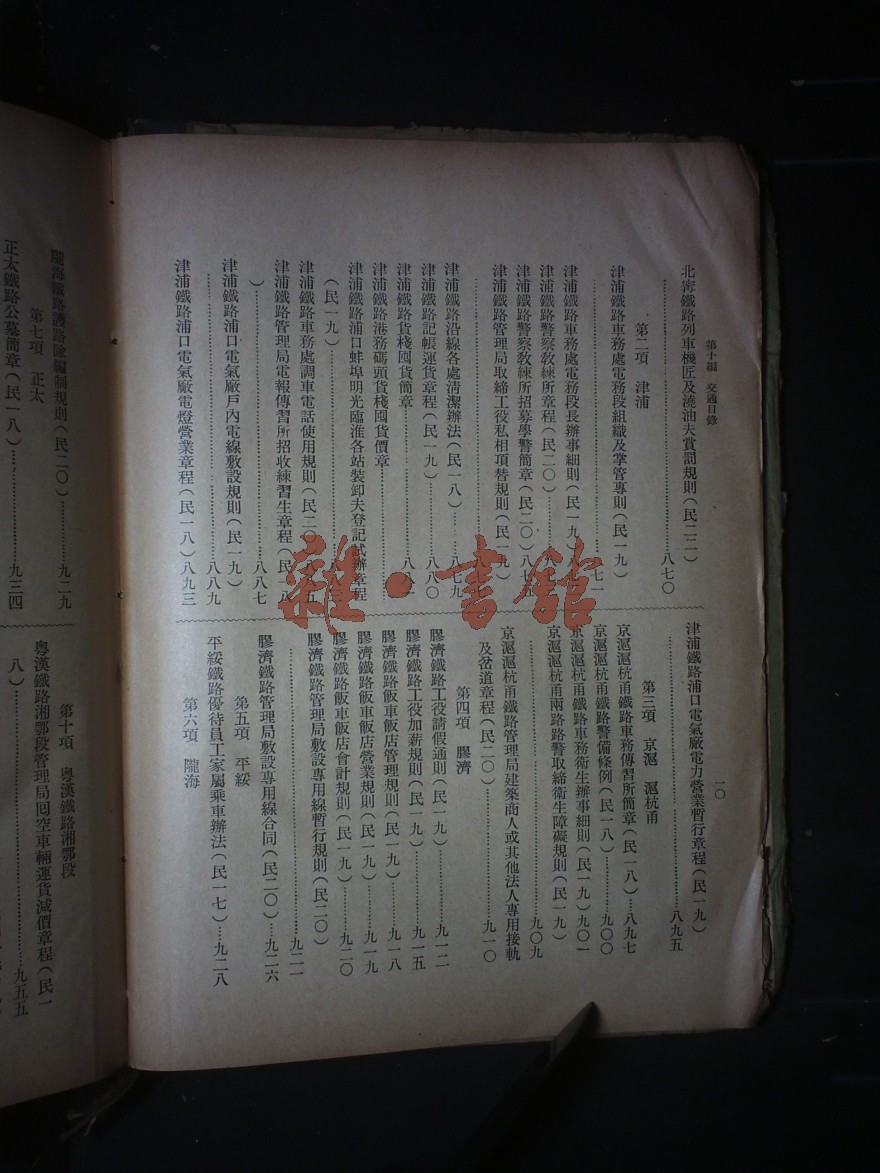 第十編　交通目錄
一〇
北寧鐵路列車機匠及澆油夫賞罰規則(民二二)
……八七〇
第二項　津浦
津浦鐵路車務處電務段組織及掌管專則(民一九)
津浦鐵路車務處電務段長辦事細則(民一九)
津浦鐵路警察教練所章程(民二〇)
津浦鐵路警察教練所招募學警簡章(民二〇)
津浦鐵路管理局取締工役私相頂替規則(民一九)
津浦鐵路沿線各處清潔辦法(民一八)……八七九
津浦鐵路記帳運貨章程(民一九)……八八〇
津浦鐵路貨棧囤貨簡章
津浦鐵路港務碼頭貨棧囤貨價章
津浦鐵路浦口蚌埠明光臨淮各站裝卸夫登記試辦章程
(民一九)
津浦鐵路車務處調車電話使用規則(民二〇)
津浦鐵路管理局電報傳習所招收練習生章程(民一八
)……八八七
津浦鐵路浦口電氣廠戶內電線敷設規則(民一九)
……八八九
津浦鐵路浦口電氣廠電燈營業章程(民一八)八九三
津浦鐵路浦口電氣廠電力營業暫行章程(民一九)
……八九五
第三項　京滬　滬杭甬
京滬滬杭甬鐵路車務傳習所簡章(民一八)……八九七
京滬滬杭甬鐵路警備條例(民一八)……九〇〇
京滬滬杭甬鐵路車務衛生辦事細則(民一九)九〇一
京滬滬杭甬兩路路警取締衛生障礙規則(民一九)
……九〇九
京滬滬杭甬鐵路管理局建築商人或其他法人專用接軌
及岔道章程(民二〇)……九一〇
第四項　膠濟
膠濟鐵路工役請假通則(民一九)……九一二
膠濟鐵路工役加薪規則(民一九)……九一五
膠濟鐵路飯車飯店管理規則(民一九)……九一八
膠濟鐵路飯車飯店營業規則(民一九)……九一九
膠濟鐵路飯車飯店會計規則(民一九)……九二〇
膠濟鐵路管理局敷設專用線暫行規則(民二〇)
……九二一
膠濟鐵路管理局敷設專用線合同(民二〇)……九二六
第五項　平綏
平綏鐵路優待員工家屬乘車辦法(民一七)……九二八
第六項　隴海
隴海鐵路護路隊編制規則(民二〇)……九二九
第七項　正太
正太鐵路公墓簡章(民一八)……九三四
第十項　粵漢鐵路湘鄂段
粵漢鐵路湘鄂段管理局囘空車輛運貨減價章程(民一
八)……九五五
雜·書館